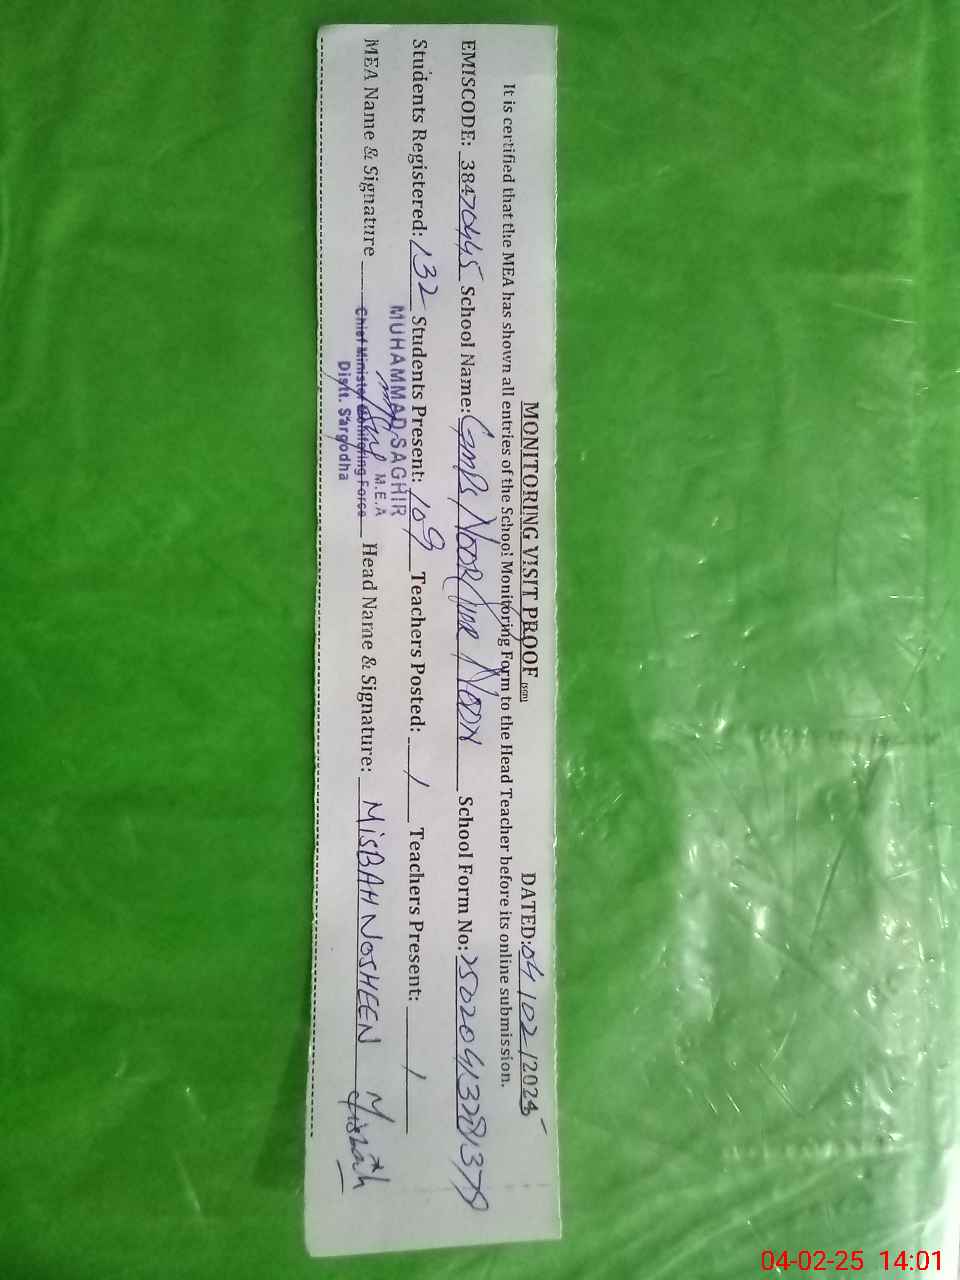 MONITORING VISIT PROOF (SED) DATED: 04/02/2025
It is certified that the MEA has shown all entries of the School Monitoring Form to the Head Teacher before its online submission.
EMISCODE: 38470445 School Name: GMPS NOOR NOON School Form No:
Students Registered: 132 Students Present: 109 Teachers Posted: 1 Teachers Present: 1
MUHAMMAD SAGHIR
M.E.A
MEA Name & Signature Chief Minister Monitoring Force Head Name & Signature: MISBAH NOSHEEN Misbah
Distt. Sargodha
04-02-25 14:01